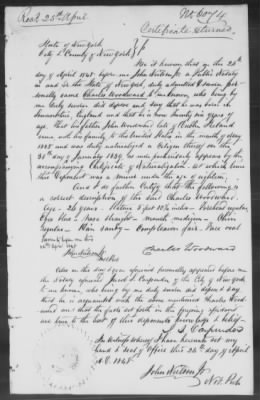 Recd. 25th April
Certificate returned.
State of New York
City & County of New York } ss
Be it known, that on the 24th
day of April 1848 before me John Wilson Jr. a Public Notary
in and for the State of New York, duly admitted & sworn, per-
sonally came Charles Woodward to me known, who being by
me duly sworn did depose and say that he was born in
England and that he is now twenty six years of
age. That his father John Woodward late of
came with his family to the United States in the month of
and was duly naturalized a Citizen thereof on the
as more particularly appears by the
accompanying Certificate of Naturalization at which time
this deponent was a minor under the age of eighteen.
And I do further Certify that the following is
a correct description of the said Charles Woodward
Age 26 years Stature 5 feet Forehead
Eyes Nose straight Mouth medium Chin
regular Hair sandy Complexion fair Face oval
Sworn before me this
24th April 1848
John Wilson Jr.
Not. Pub.
Charles Woodward
Also on the day & year aforesaid personally appeared before me
the Notary aforesaid Carpender of the City of New York
to me known, who being by me duly sworn did depose & say
that he is acquainted with the above mentioned Charles Wood-
ward and that the facts set forth in the foregoing affidavit
are true to the best of this deponents knowledge & belief.
Carpender
In Witness whereof I have hereunto set my
hand & seal of office this 24th day of April
A.D. 1848
John Wilson Jr.
Not. Pub.